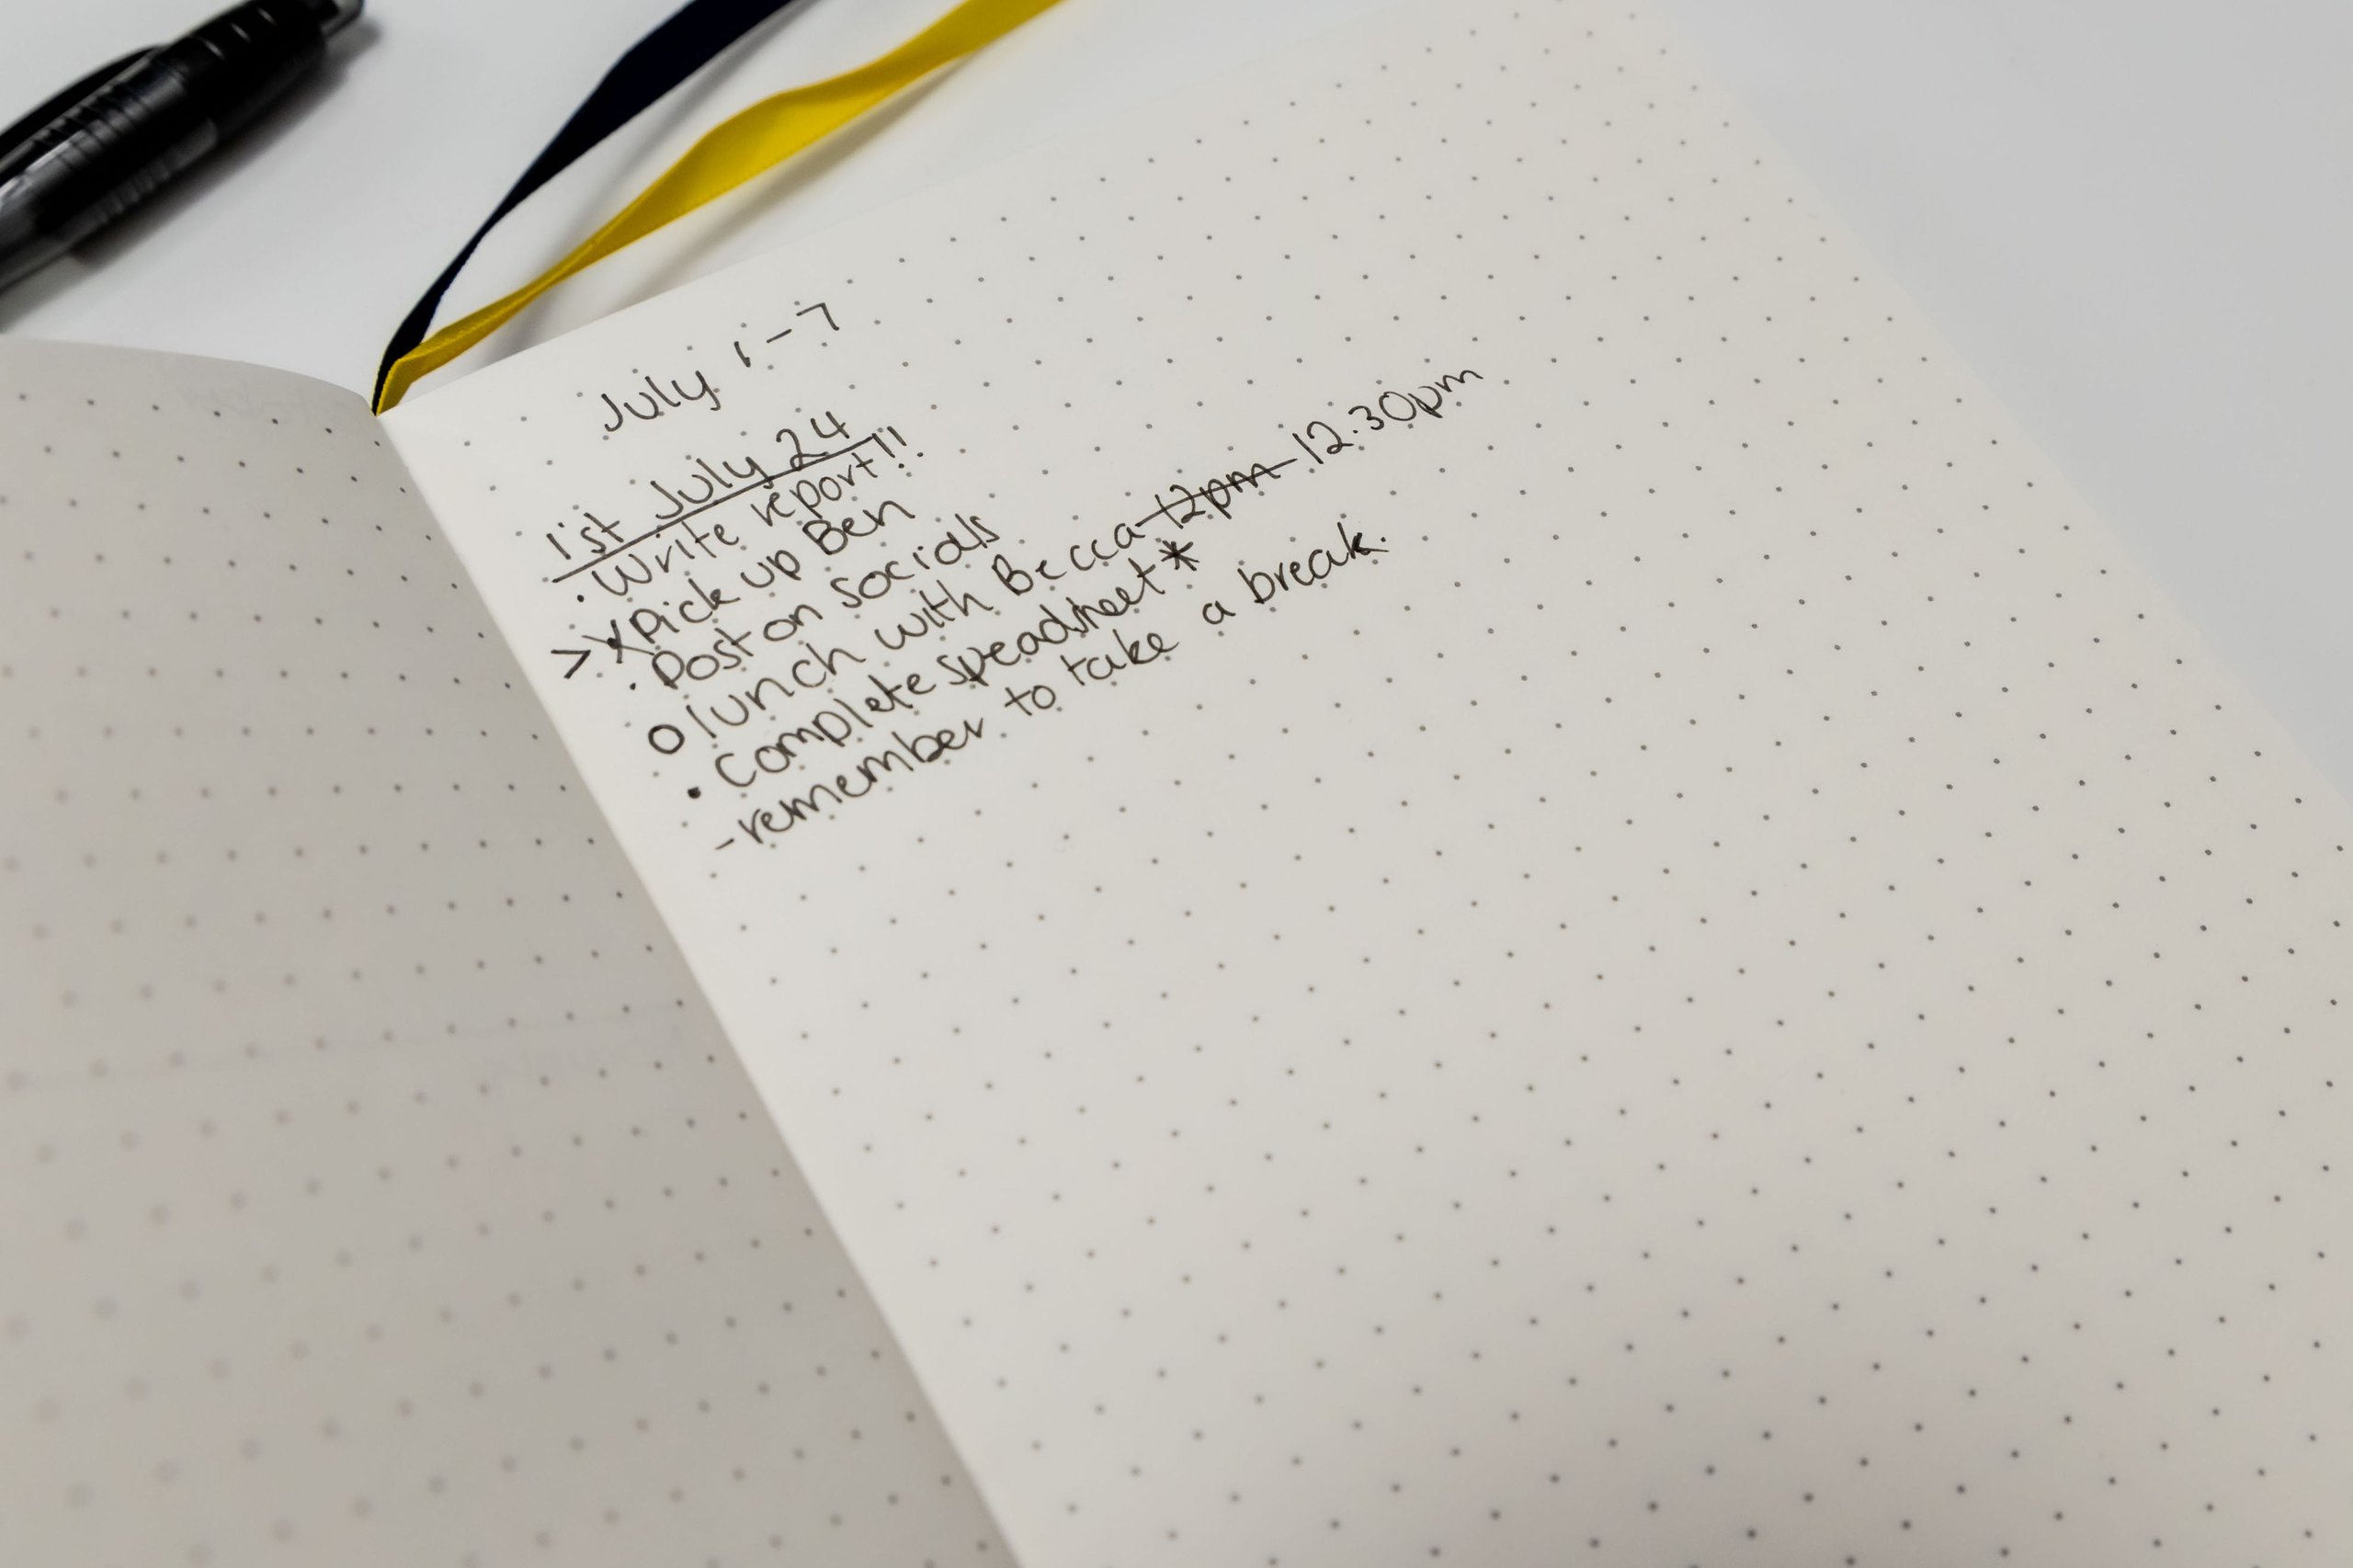 July 1-7
1st July 24
. Write report!!
> X Pick up Ben
. Post on socials
O lunch with Becca - 12pm - 12.30pm
. Complete speadsheet *
- remember to take a break.